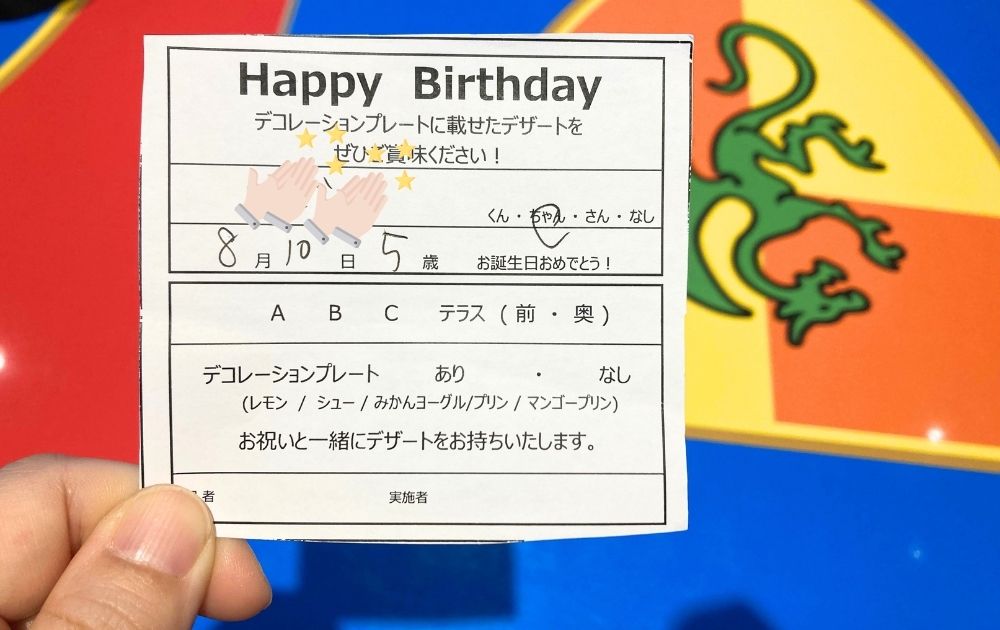 Happy Birthday
デコレーションプレートに載せたデザートを
ぜひご賞味ください！
くん・ちゃん・さん・なし
8月10日 5歳 お誕生日おめでとう！
A B C テラス ( 前 ・ 奥 )
デコレーションプレート あり ・ なし
(レモン / シュー / みかんヨーグル/プリン / マンゴープリン)
お祝いと一緒にデザートをお持ちいたします。
者 実施者